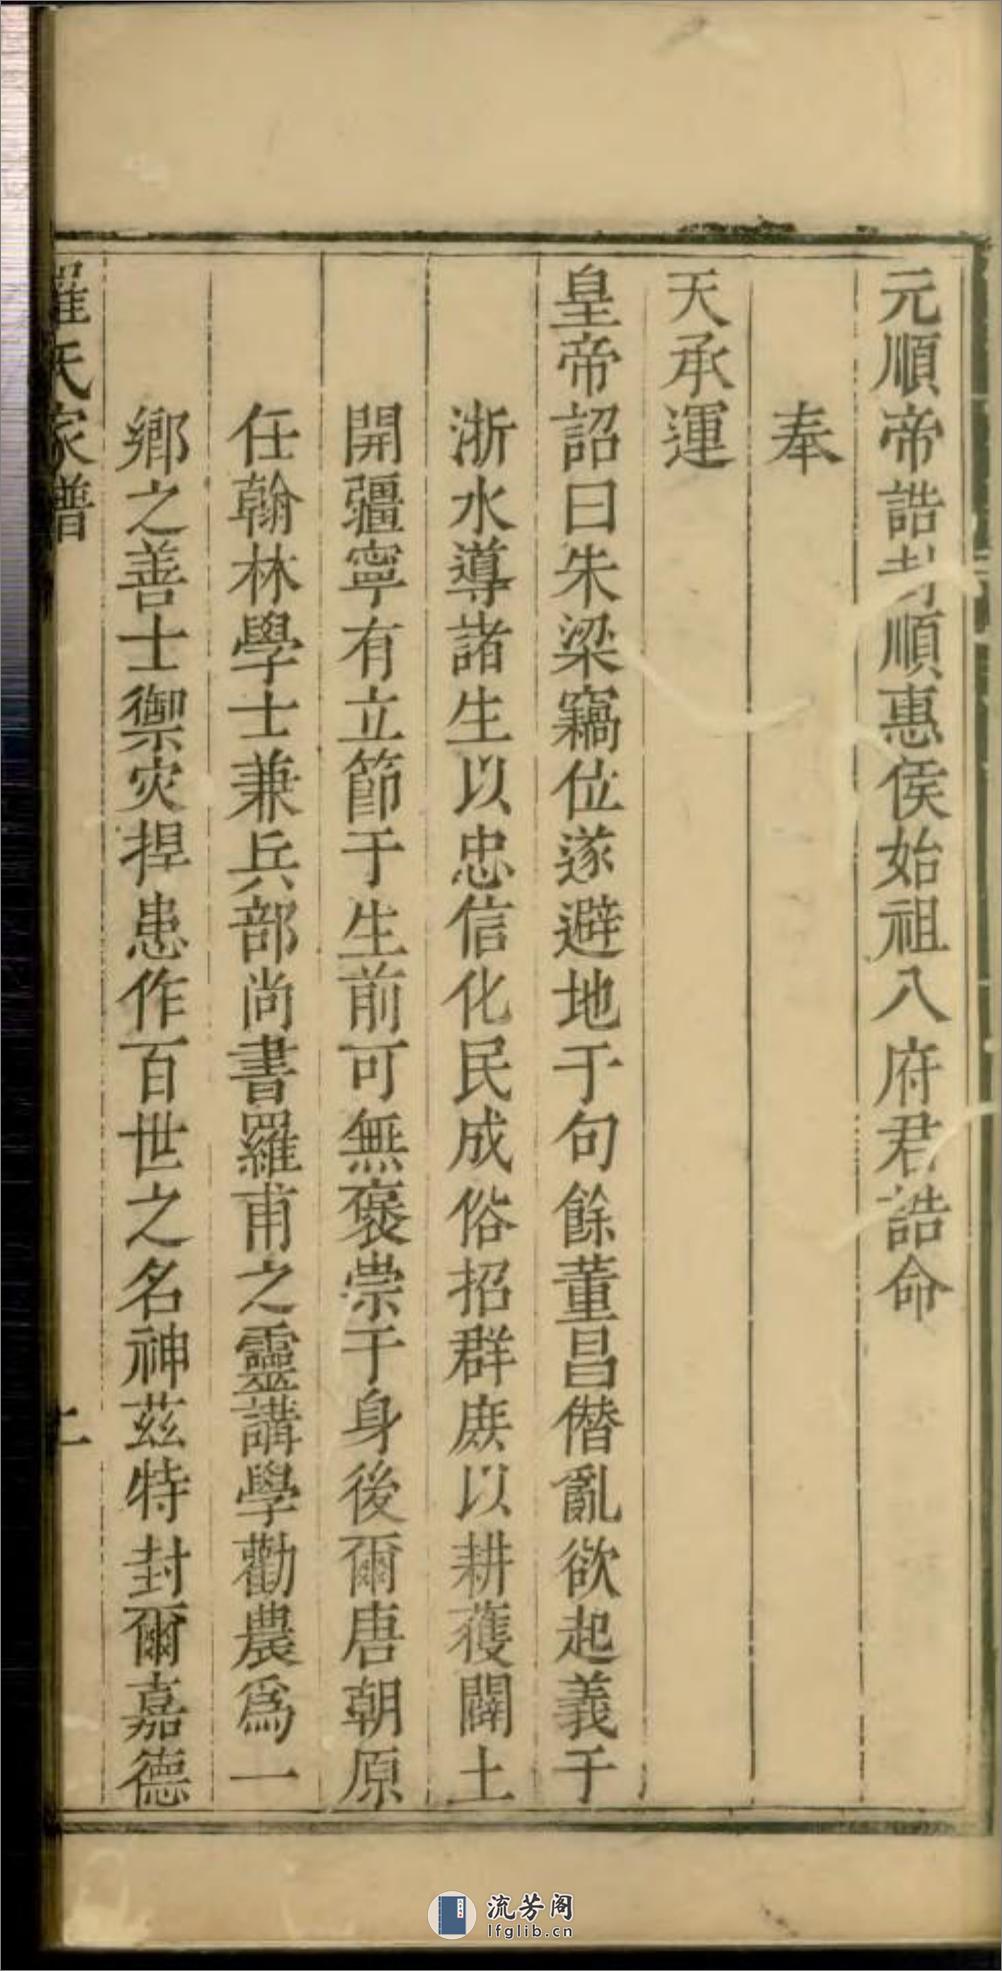 元順帝誥封順惠侯始祖八府君誥命
奉
天承運
皇帝詔曰朱梁竊位遂避地于句餘董昌僭亂欲起義于
浙水導諸生以忠信化民成俗招群庶以耕獲闢土
開疆寧有立節于生前可無褒崇于身後爾唐朝原
任翰林學士兼兵部尚書羅甫之靈講學勸農爲一
鄉之善士禦灾捍患作百世之名神茲特封爾嘉德
羅氏家譜
上
流芳阁
lfglib.cn